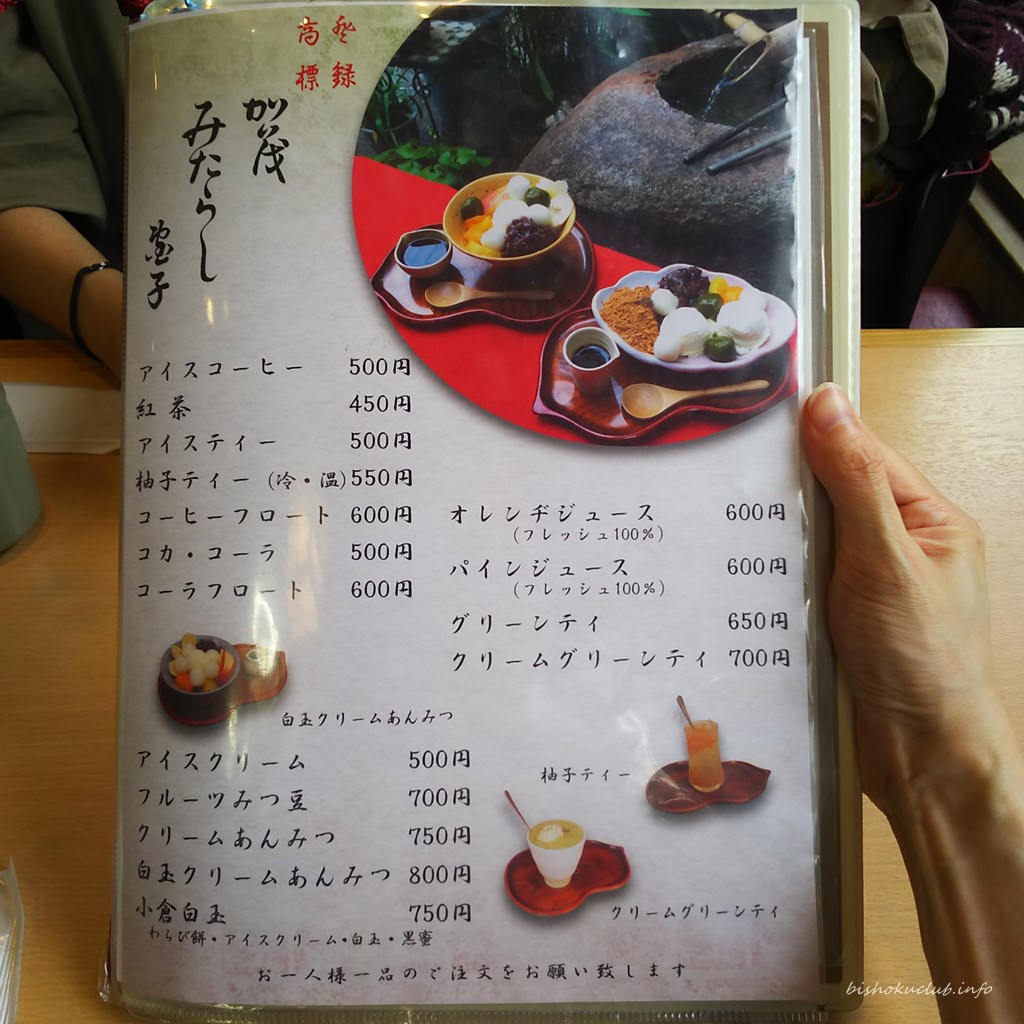 登録
商標
加茂
みたらし
団子
アイスコーヒー 500円
紅茶 450円
アイスティー 500円
柚子ティー (冷・温) 550円
コーヒーフロート 600円
コカ・コーラ 500円
コーラフロート 600円
オレンヂジュース 600円
(フレッシュ100%)
パインジュース 600円
(フレッシュ100%)
グリーンティ 650円
クリームグリーンティ 700円
白玉クリームあんみつ
アイスクリーム 500円
フルーツみつ豆 700円
クリームあんみつ 750円
白玉クリームあんみつ 800円
小倉白玉 750円
わらび餅・アイスクリーム・白玉・黒蜜
柚子ティー
クリームグリーンティ
お一人様一品のご注文をお願い致します
bishokuclub.info